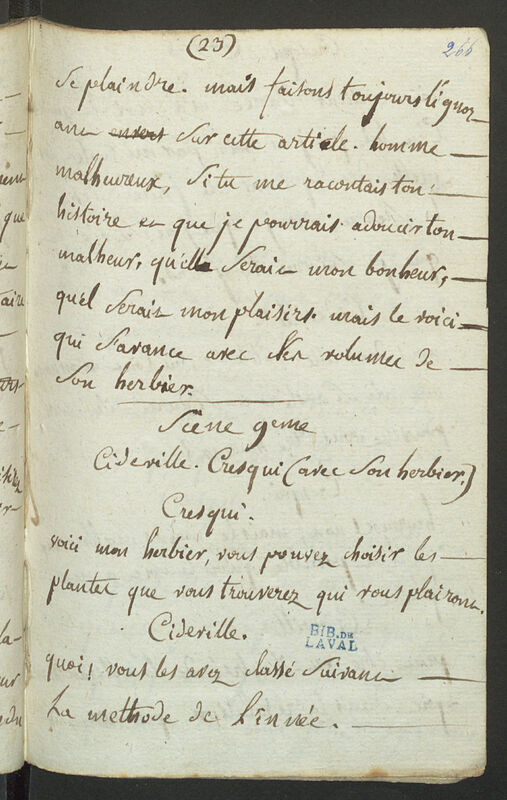 (23)
266
se plaindre. mais faisons toujours l'ignor
ant envers sur cette article. homme
malheureux, si tu me racontais ton
histoire et que je pourrais adoucir ton
malheur, qu'elle serait mon bonheur,
quel serait mon plaisirs. mais le voici
qui s'avance avec les volumes de
son herbier.
Scene 9eme
Cideville. Cresqui (avec son herbier.)
Cresqui.
voici mon herbier, vous pouvez choisir les
plantes que vous trouverez qui vous plairont.
Cideville.
BIB. DE
LAVAL
quoi! vous les avez classé suivant
la methode de linnée.